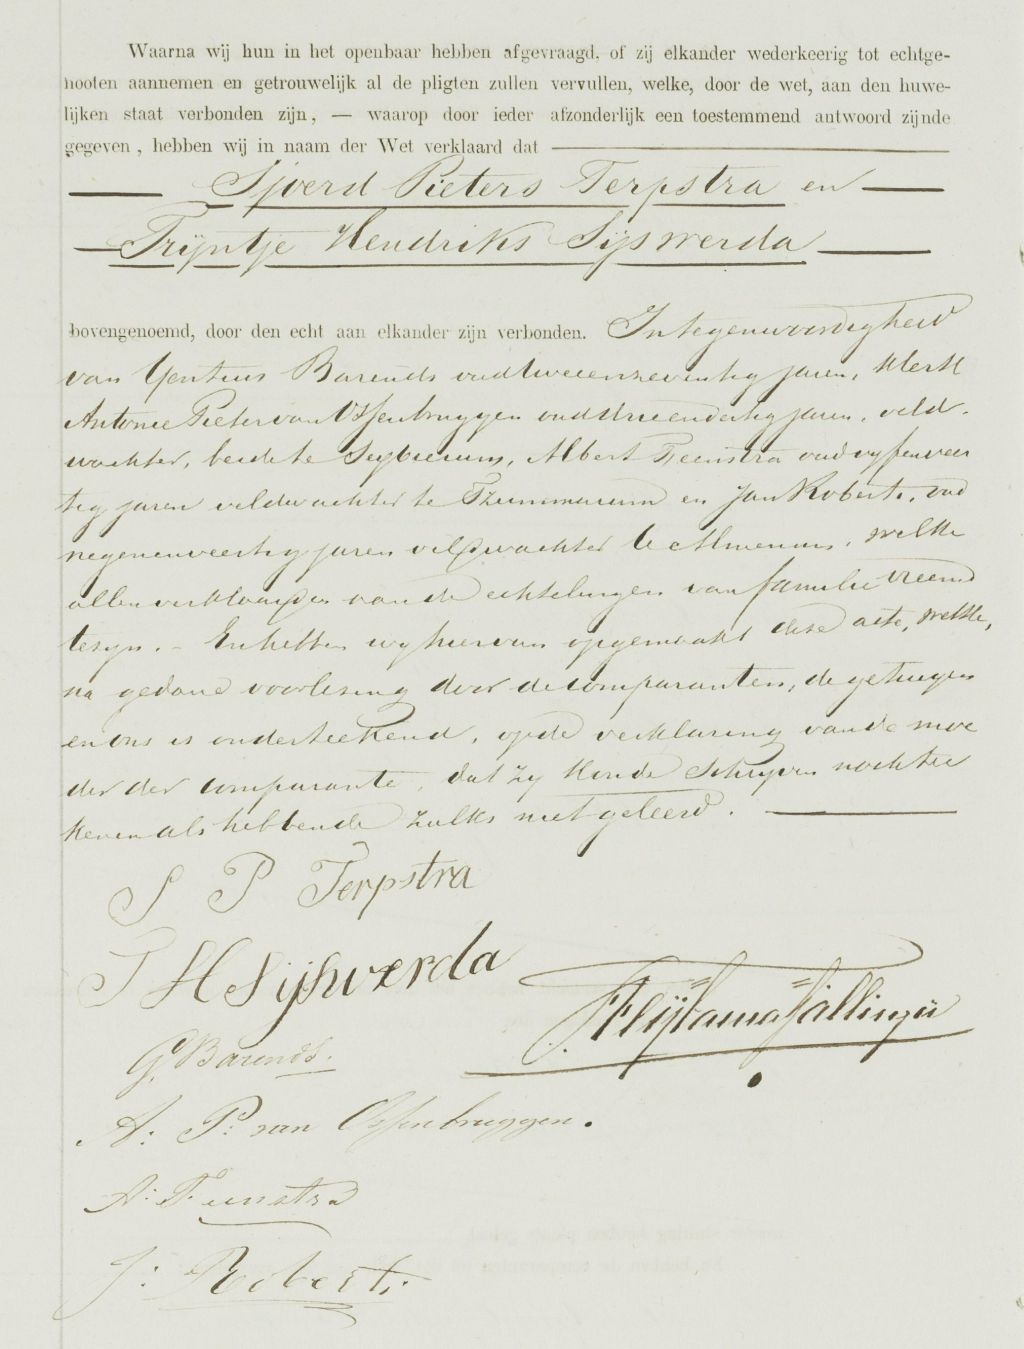 Waarna wij hun in het openbaar hebben afgevraagd, of zij elkander wederkeerig tot echtge-
nooten aannemen en getrouwelijk al de pligten zullen vervullen, welke, door de wet, aan den huwe-
lijken staat verbonden zijn, — waarop door ieder afzonderlijk een toestemmend antwoord zijnde
gegeven, hebben wij in naam der Wet verklaard dat
Sjoerd Pieters Terpstra en
Trijntje Hendriks Sijswerda
bovengenoemd, door den echt aan elkander zijn verbonden. In tegenwoordigheid
van Gentius Barends oud tweeenzeventig jaren, klerk
Antonie Pieter van Ossenbruggen oud drieendertig jaren, veld-
wachter, beide te Sexbierum, Albert Feenstra oud vyfenveer
tig jaren veldwachter te Tzummarum en Jan Roberti, oud
negenenveertig jaren veldwachter te Almenum, welke
allen verklaarden van de echtelingen van familie vreemd
te zyn. – En hebben wy hiervan opgemaakt deze acte, welke,
na gedane voorlezing door de comparanten, de getuigen
en ons is onderteekend, op de verklaring van de moe
der der comparante, dat zy konde schryven noch tee
kenen als hebbende zulks niet geleerd.
S P Terpstra
T H Sijswerda
G. Barends.
A: P: van Ossenbruggen.
A: Feenstra
J: Roberti